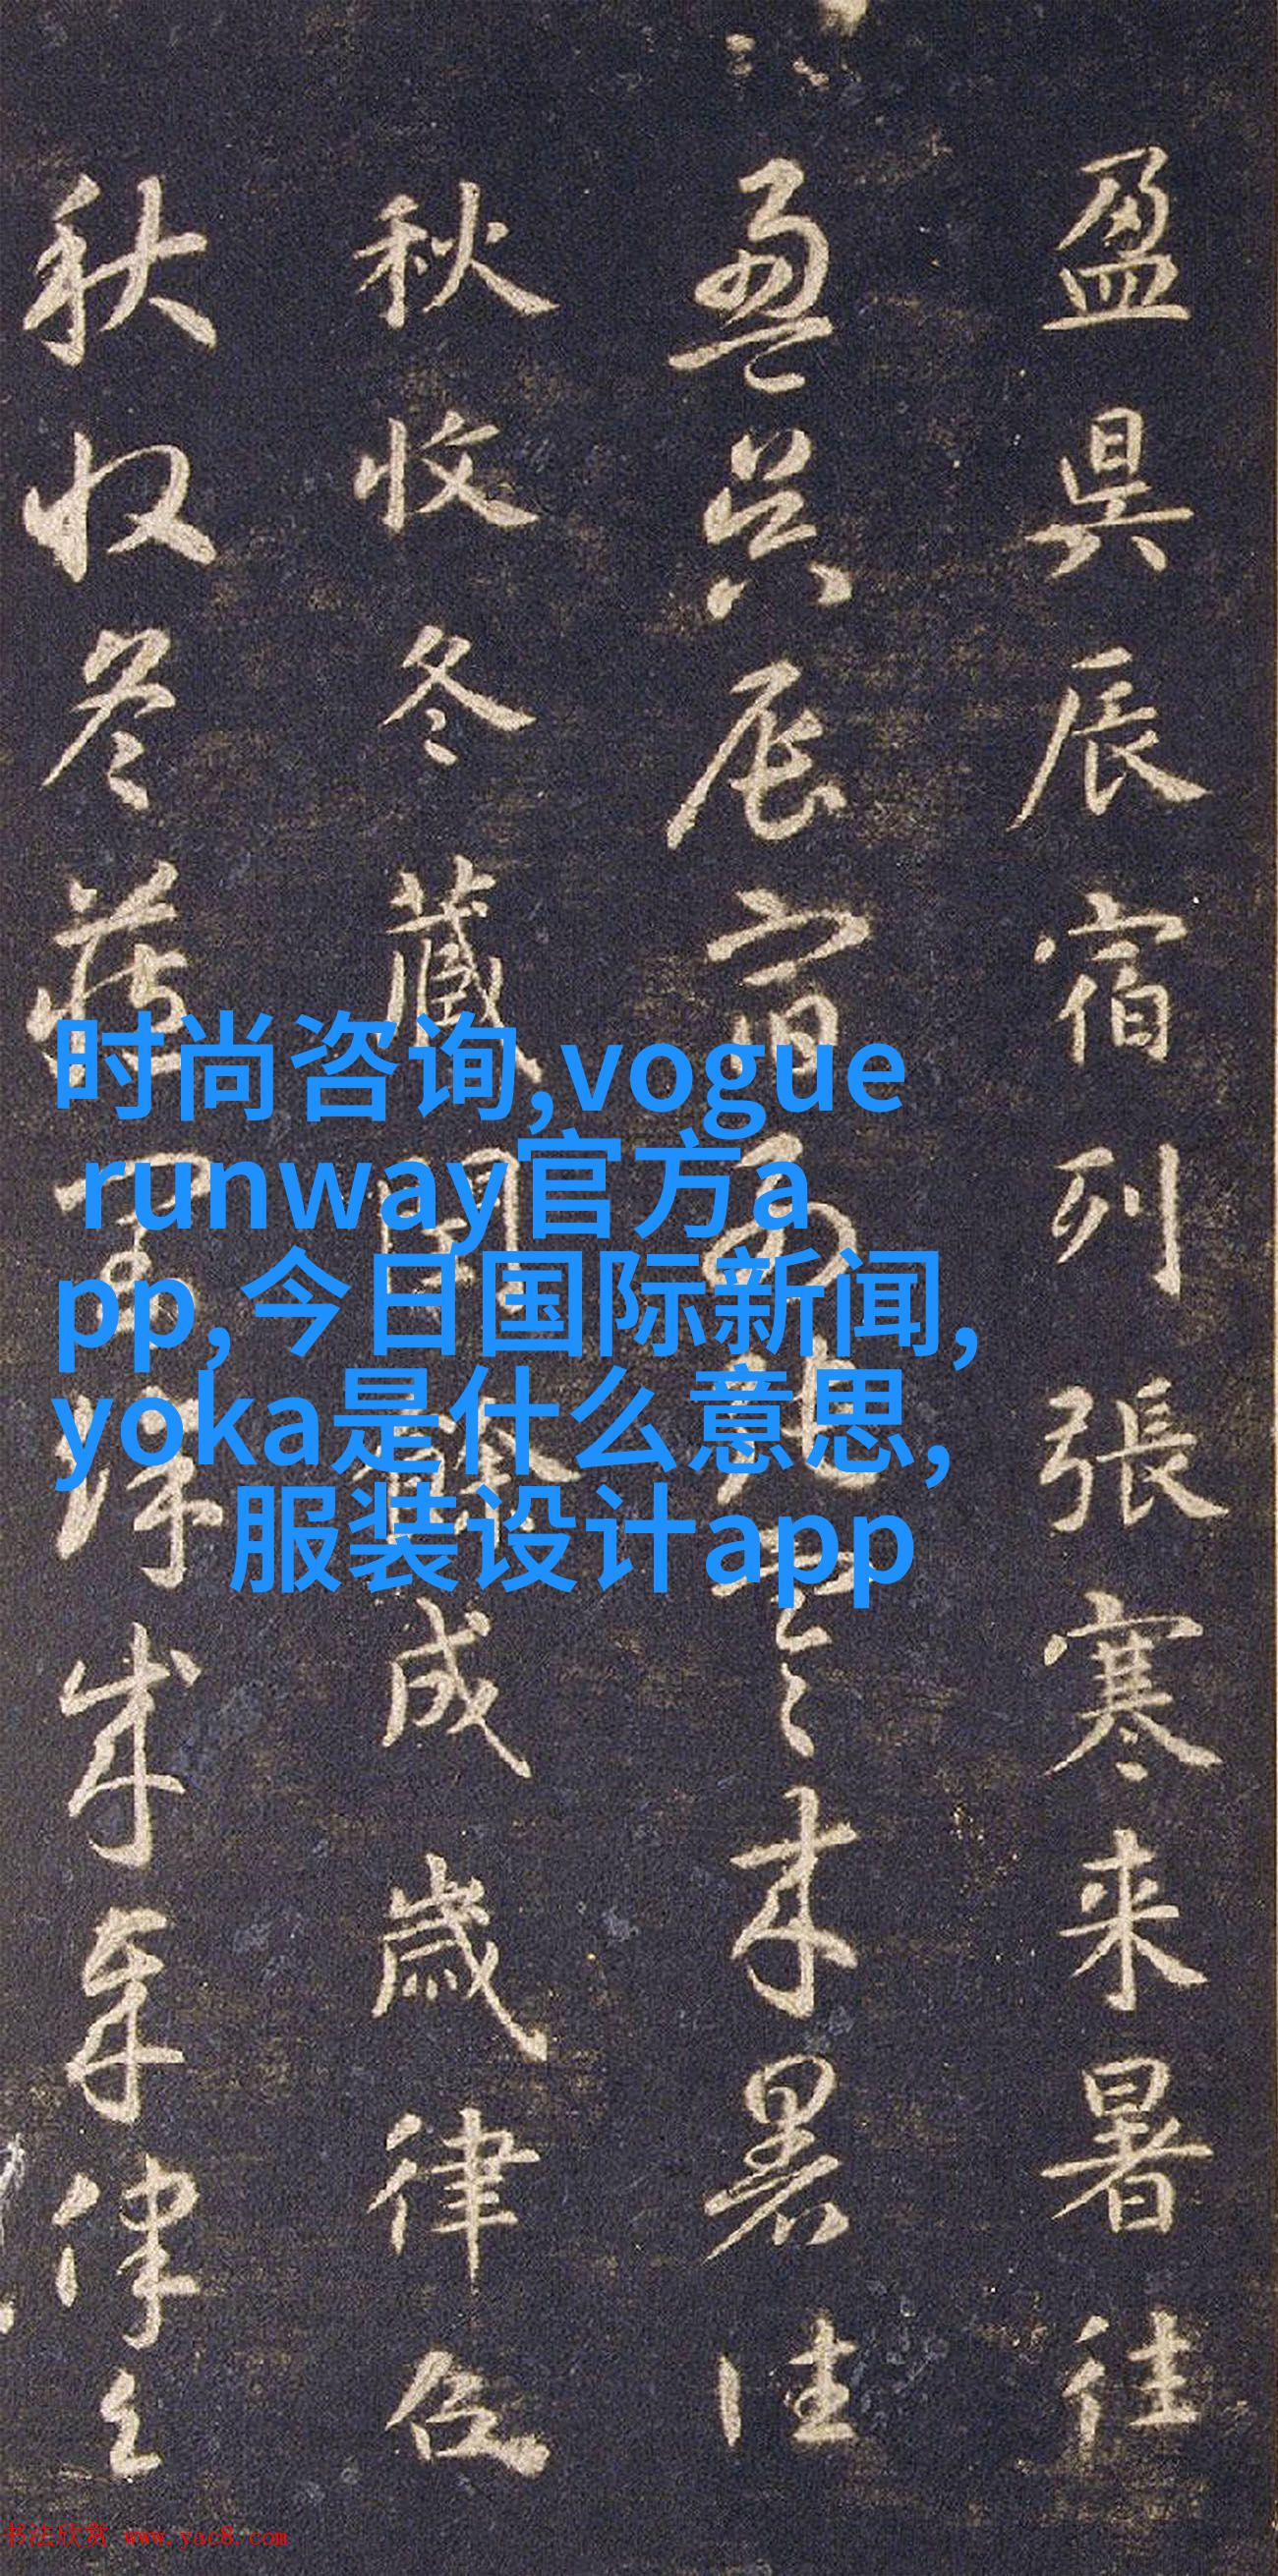 盈昃辰宿列張寒来暑往
盈昃辰宿列張寒来暑往
秋收冬藏閏餘成歲律召
秋收冬藏閏餘成歲律召
时尚咨询,vogue
runway官方a
pp,今日国际新闻,
yoka是什么意思,
服装设计app
书法欣赏 www.yac8.com